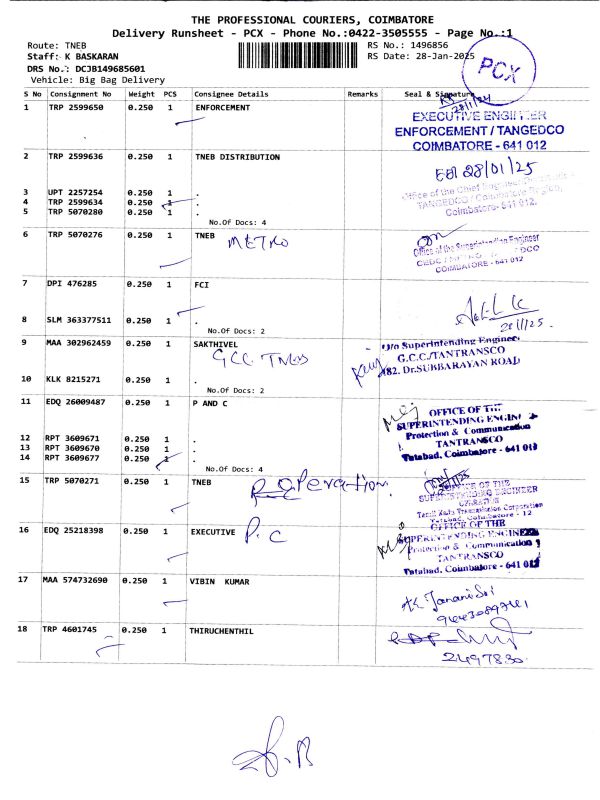 THE PROFESSIONAL COURIERS, COIMBATORE
Delivery Runsheet - PCX - Phone No.:0422-3505555 - Page No.:1
Route: TNEB
RS No.: 1496856
Staff: K BASKARAN
RS Date: 28-Jan-2025
DRS No.: DCJB149685601
Vehicle: Big Bag Delivery
PCX
S No Consignment No Weight PCS Consignee Details Remarks Seal & Signature
1 TRP 2599650 0.250 1 ENFORCEMENT
28/1/24
EXECUTIVE ENGINEER
ENFORCEMENT / TANGEDCO
COIMBATORE - 641 012
2 TRP 2599636 0.250 1 TNEB DISTRIBUTION
28/01/25
Office of the Chief Engineer
TANGEDCO / Coimbatore Region,
Coimbatore- 641 012.
3 UPT 2257254 0.250 1 .
4 TRP 2599634 0.250 1 .
5 TRP 5070280 0.250 1 .
No.Of Docs: 4
6 TRP 5070276 0.250 1 TNEB
METRO
Office of the Superintending Engineer
COIMBATORE - 641 012
7 DPI 476285 0.250 1 FCI
28/1/25.
8 SLM 363377511 0.250 1 .
No.Of Docs: 2
9 MAA 302962459 0.250 1 SAKTHIVEL
GCC TNEB
O/o Superintending Engineer
G.C.C./TANTRANSCO
182. Dr.SUBBARAYAN ROAD
10 KLK 8215271 0.250 1 .
No.Of Docs: 2
11 EDQ 26009487 0.250 1 P AND C
OFFICE OF THE
SUPERINTENDING ENGINEER
Protection & Communication
TANTRANSCO
Tatabad, Coimbatore - 641 012
12 RPT 3609671 0.250 1 .
13 RPT 3609670 0.250 1 .
14 RPT 3609677 0.250 1 .
No.Of Docs: 4
15 TRP 5070271 0.250 1 TNEB
Operation
OFFICE OF THE
SUPERINTENDING ENGINEER
OPERATION
Tamil Nadu Transmission Corporation
Tatabad, Coimbatore - 12
16 EDQ 25218398 0.250 1 EXECUTIVE
P.C
OFFICE OF THE
SUPERINTENDING ENGINEER
Protection & Communication
TANTRANSCO
Tatabad, Coimbatore - 641 012
17 MAA 574732690 0.250 1 VIBIN KUMAR
18 TRP 4601745 0.250 1 THIRUCHENTHIL
2497830